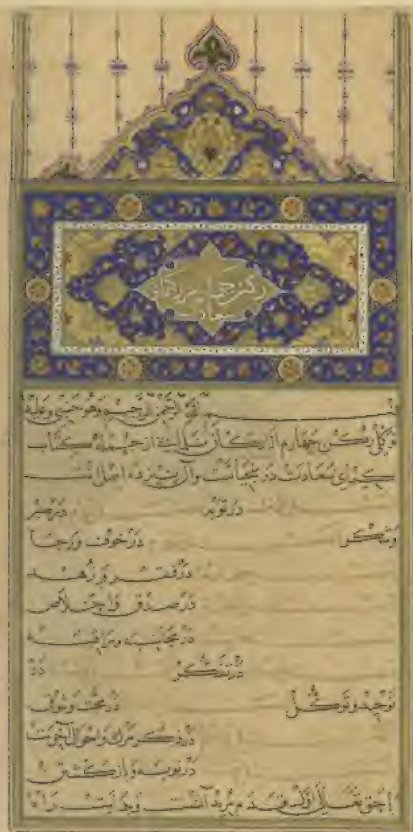 رکن چهارم
سعادت
بسم الله الرحمن الرحیم وهو حسبی وعلیه
توکلی رکن چهارم از ارکان از جمله کتاب
کیمیای سعادت در منجیات وآن ده اصل است
در توبه در صبر
وشکر در خوف ورجا
در فقر وزهد
در صدق واخلاص
در محاسبه ومراقبه
در تفکر در
توحید وتوکل در محبت وشوق
در ذکر مرگ واحوال آخرت
در توبه وبازگشتن
حق تعالی اول قدم مریدانست راه